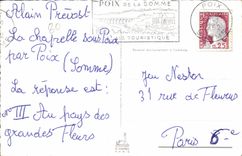 POIX DE LA SOMME
TOURISTIQUE
POIX
0.25
Alain Prévost
La chapelle sous Poix
par Poix
(Somme)
La réponse est :
n° III Au pays des
grandes Fleurs
Jeu Nestor
31 rue de Fleurus
Paris 6e